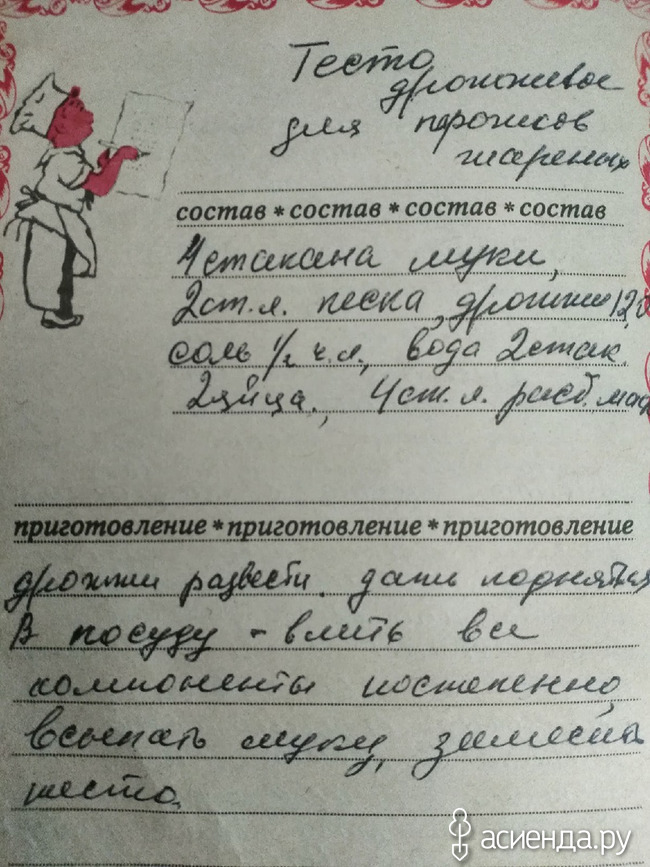 Тесто
дрожжевое
для пирожков
жареных
состав * состав * состав * состав
4 стакана муки,
2 ст. л. песка, дрожжи 12,0
соль 1/2 ч. л., вода 2 стак.
2 яйца., 4 ст. л. раст. мас
приготовление * приготовление * приготовление
дрожжи развести. дать подняться
В посуду - влить все
компоненты постепенно,
всыпать муку, замесить
тесто.
асиенда.ру